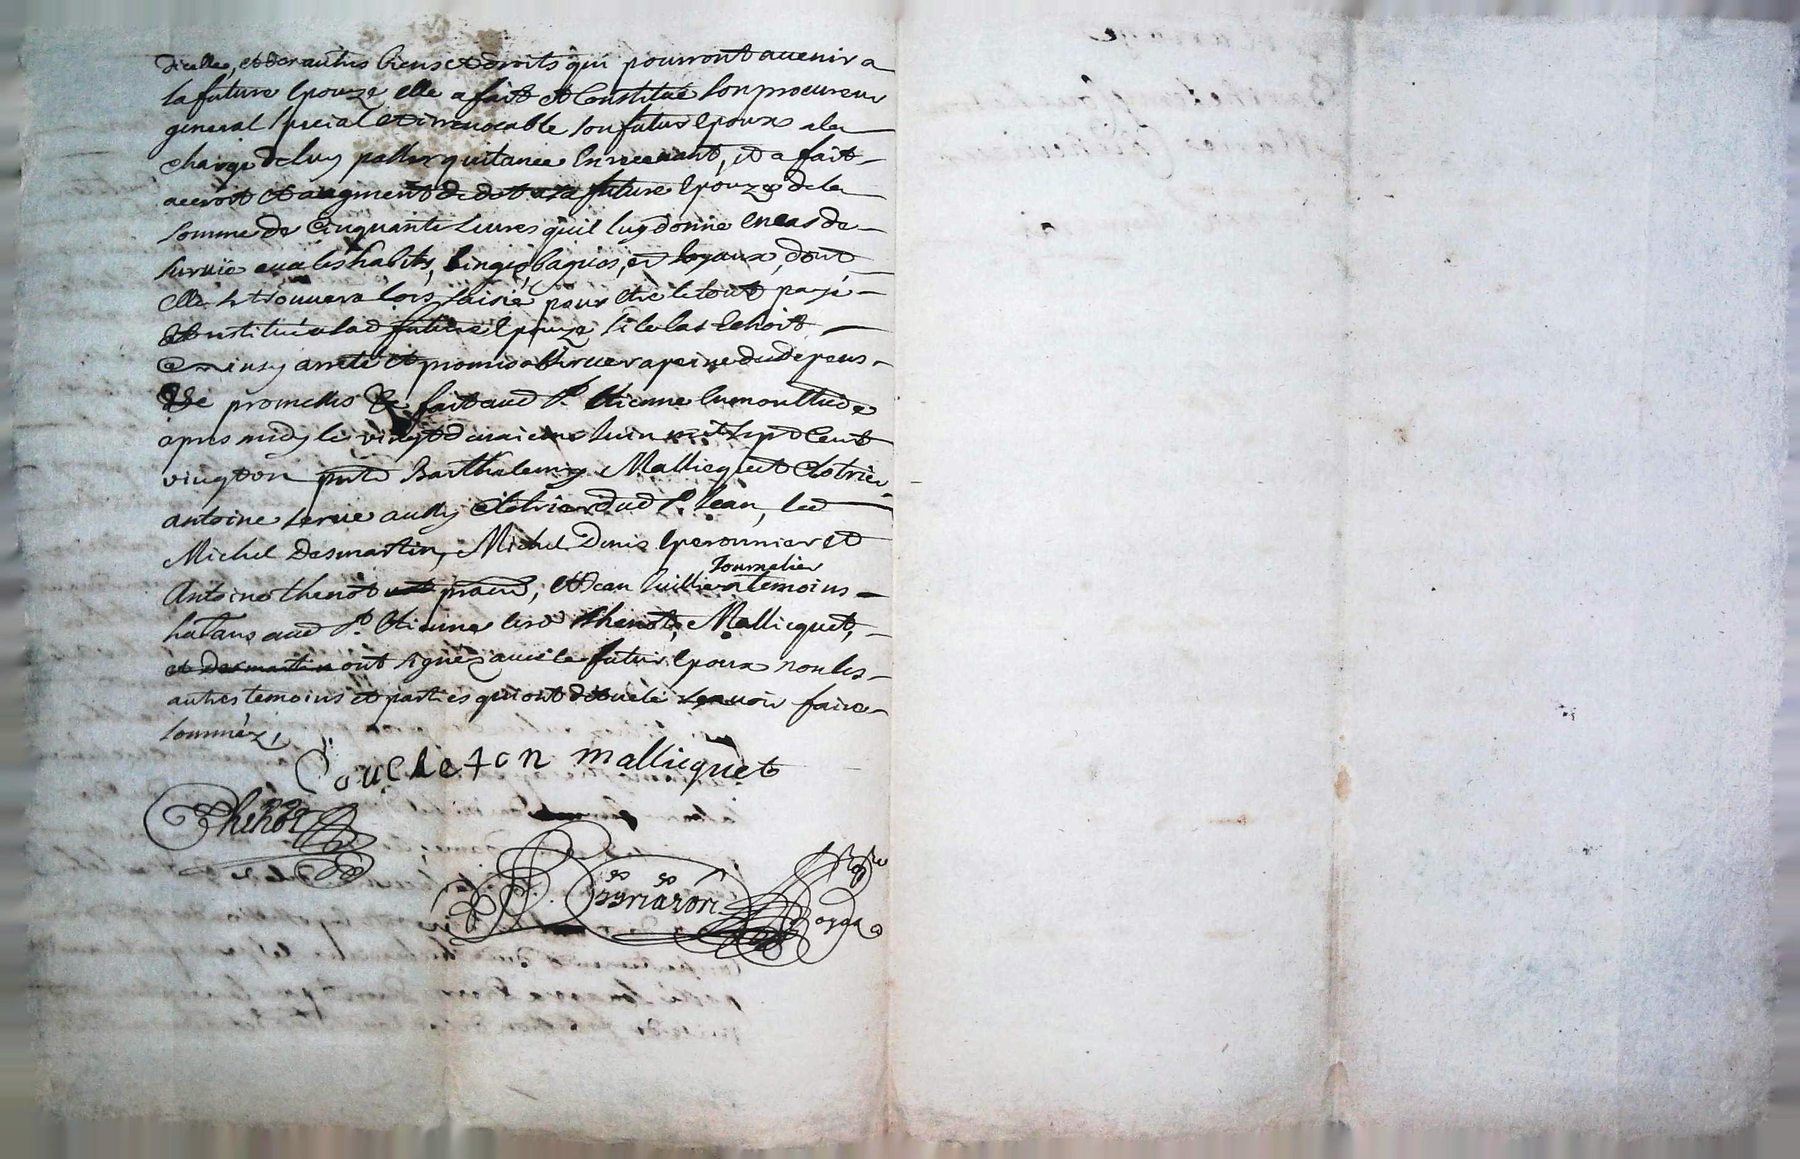 dicelles, et des autres biens et droits qui pourront avenir a
la future Epouze elle a fait et Constitué son procureur
general special et irrevocable son futur Epoux a la
charge de luy passer quitance En recevant, et a fait
accroit et augment de dot a sa future Epouze de la
somme de Cinquante Livres quil luy donne En cas de
survie avec les habits, linges, bagues, et joyaux, dont
elle se trouvera lors saisie pour etre le tout payé
et restitué a lad future Epouze, si le cas Echoit
Ainsy arreté et promis observer a peine de dépens
promesses fait aud St. Etienne
apres midy le vingt deuxieme Juin mil sept Cent
vingt un pnts Barthelemy Mallicquet Clotrier
antoine serve aussy Clotrier dud St. Jean, led
Michel Desmartin, Michel Denis Eperonnier et
Tournelier
Antoine thenot, et Jean temoins
hatans aud St. Etienne lesd thenot, Mallicquet,
et desmartin ont signez avec le futur Epoux non les
autres temoins et parties qui ont declaré scavoir faire
sommez,
Coucheton mallicquet
Thenot